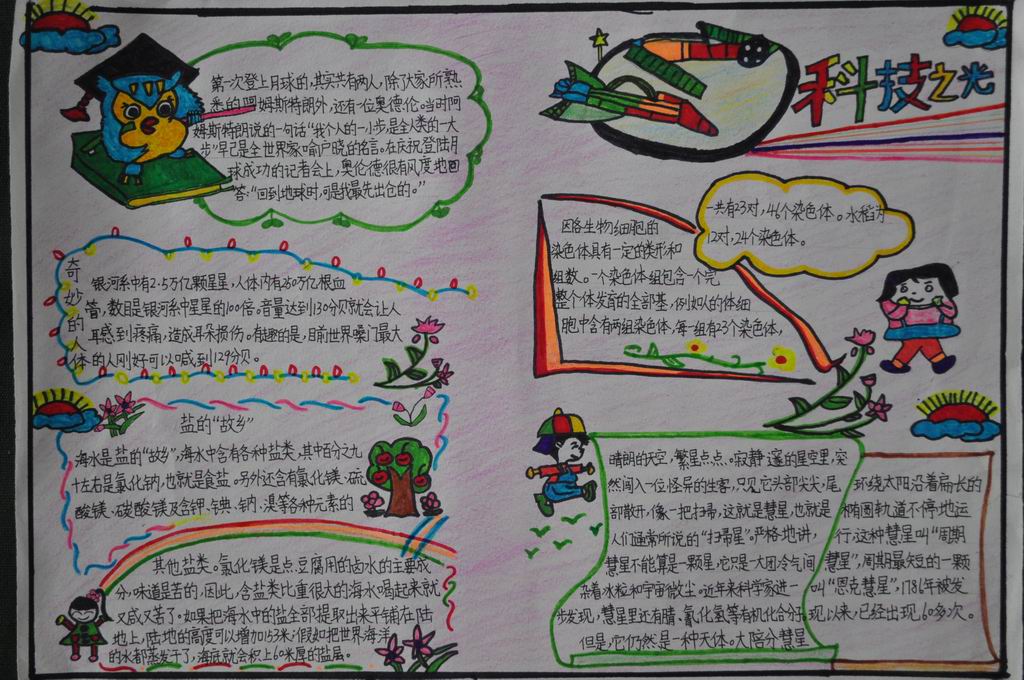 科技之光
第一次登上月球的,其实共有两人,除了大家所熟
悉的阿姆斯特朗外,还有一位奥德伦。当时阿
姆斯特朗说的一句话“我个人的一小步,是全人类的一大
步”早已是全世界家喻户晓的名言。在庆祝登陆月
球成功的记者会上,奥伦德很有风度地回
答:“回到地球时,可是我最先出仓的。”
奇妙的人体
银河系中有2.5万亿颗星星,人体内有250万亿根血
管,数目是银河系中星星的100倍。音量达到130分贝就会让人
耳感到疼痛,造成耳朵损伤。有趣的是,目前世界嗓门最大
的人刚好可以喊到129分贝。
盐的“故乡”
海水是盐的“故乡”,海水中含有各种盐类,其中百分之九
十左右是氯化钠,也就是食盐。另外还含有氯化镁、硫
酸镁、碳酸镁及含钾、钠、溴等各种元素的
其他盐类。氯化镁是点豆腐用的卤水的主要成
分,味道是苦的,因此,含盐类比重很大的海水喝起来就
又咸又苦了。如果把海水中的盐全部提取出来平铺在陆
地上,陆地的高度可以增加153米;假如把世界海洋
的水都蒸发干了,海底就会积上60米厚的盐层。
因各生物细胞的
染色体具有一定的类形和
组数。一个染色体组包含一个完
整个体发育的全部基,例如人的体细
胞中含有两组染色体,每一组有23个染色体,
一共有23对,46个染色体。水稻为
12对,24个染色体。
晴朗的天空,繁星点点。寂静遥的星空里,突
然闯入一位怪异的生客,只见它头部尖尖,尾
部散开,像一把扫帚,这就是慧星,也就是
人们通常所说的“扫帚星”。严格地讲,
慧星不能算是一颗星,它只是一大团冷气间
杂着冰粒和宇宙微尘。近年来科学家进一
步发现,慧星里还有腈、氰化氢等有机化合分子。
但是,它仍然是一种天体。大陪分慧星
环绕太阳沿着扁长的
椭圆轨道不停地运
行,这种慧星叫“周期
慧星”,周期最短的一颗
叫“恩克慧星”,1786年被发
现以来,已经出现60多次。